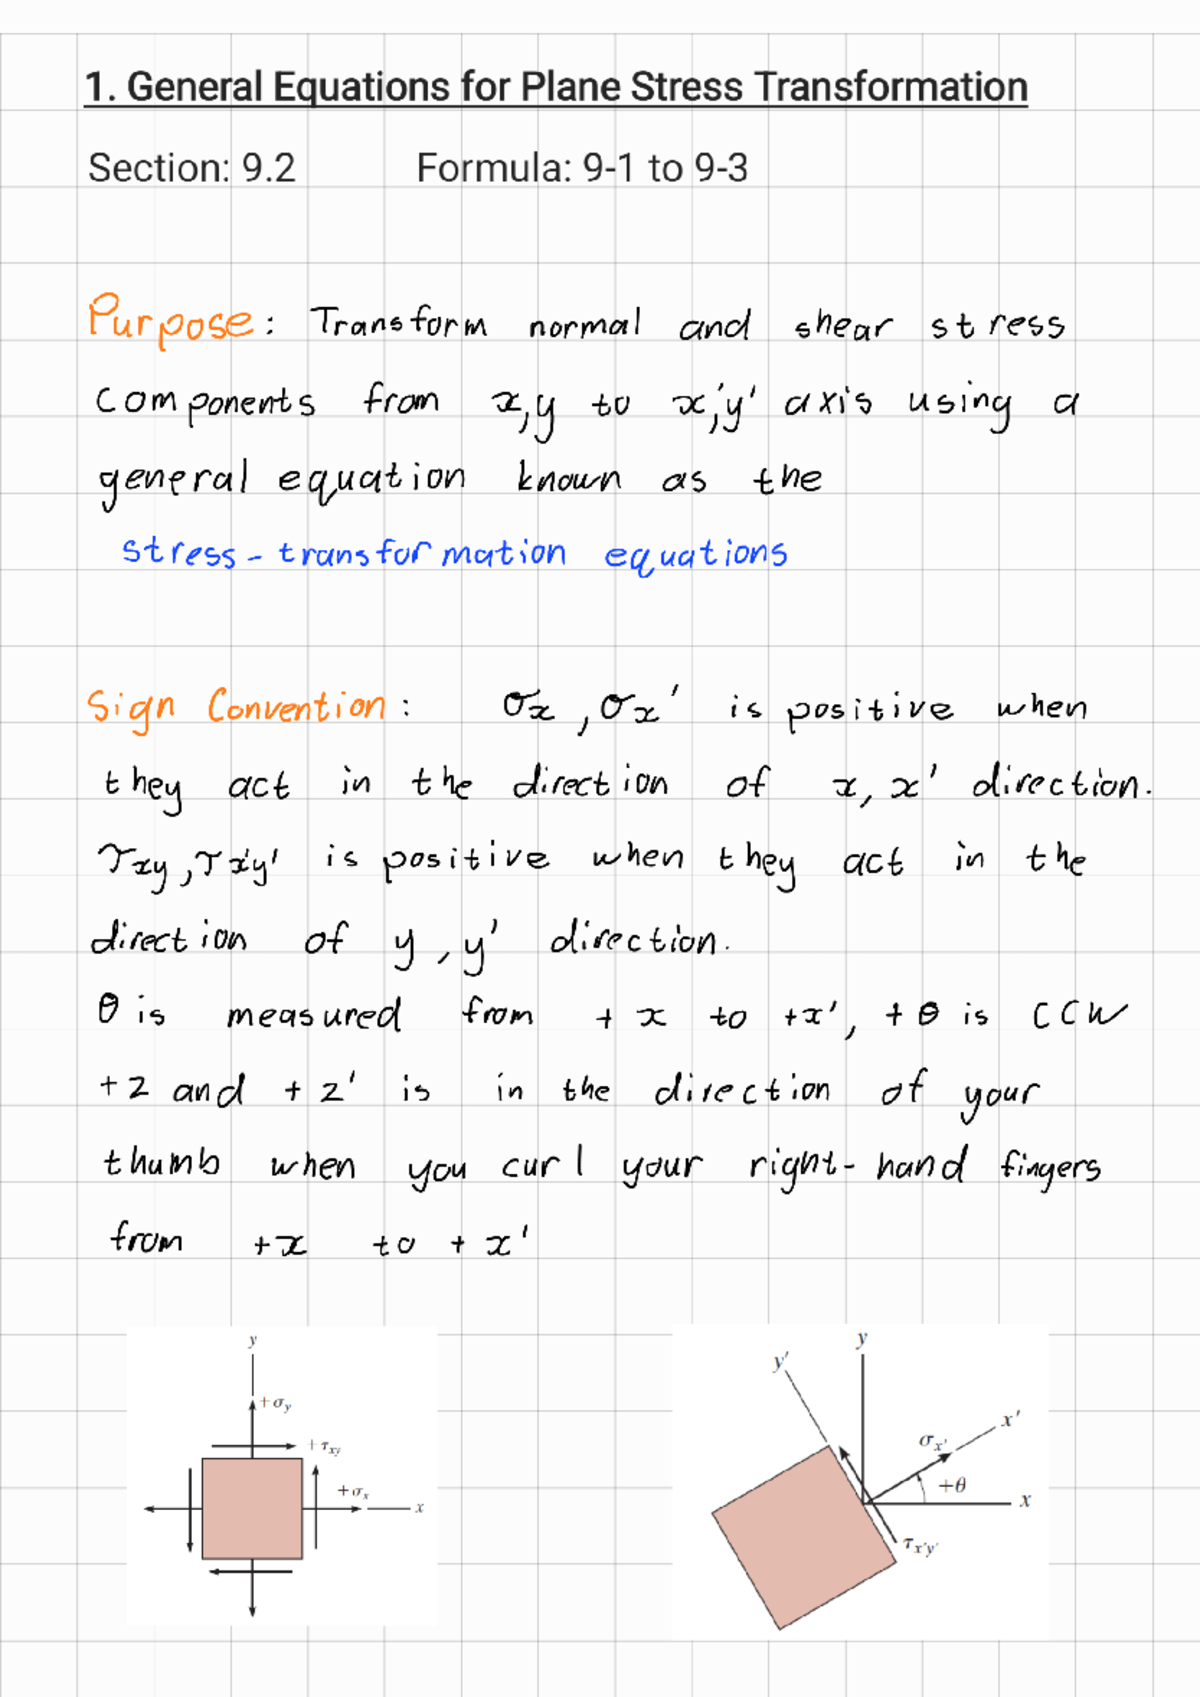 1. General Equations for Plane Stress Transformation
Section: 9.2 Formula: 9-1 to 9-3
Purpose: Transform normal and shear stress
components from x,y to x',y' axis using a
general equation known as the
stress-transformation equations
Sign Convention: σx, σx' is positive when
they act in the direction of x, x' direction.
τxy, τx'y' is positive when they act in the
direction of y, y' direction.
θ is measured from +x to +x', +θ is CCW
+z and +z' is in the direction of your
thumb when you curl your right-hand fingers
from +x to +x'
y
+σy
+τxy
+σx
x
y
y'
x'
σx'
+θ
x
τx'y'